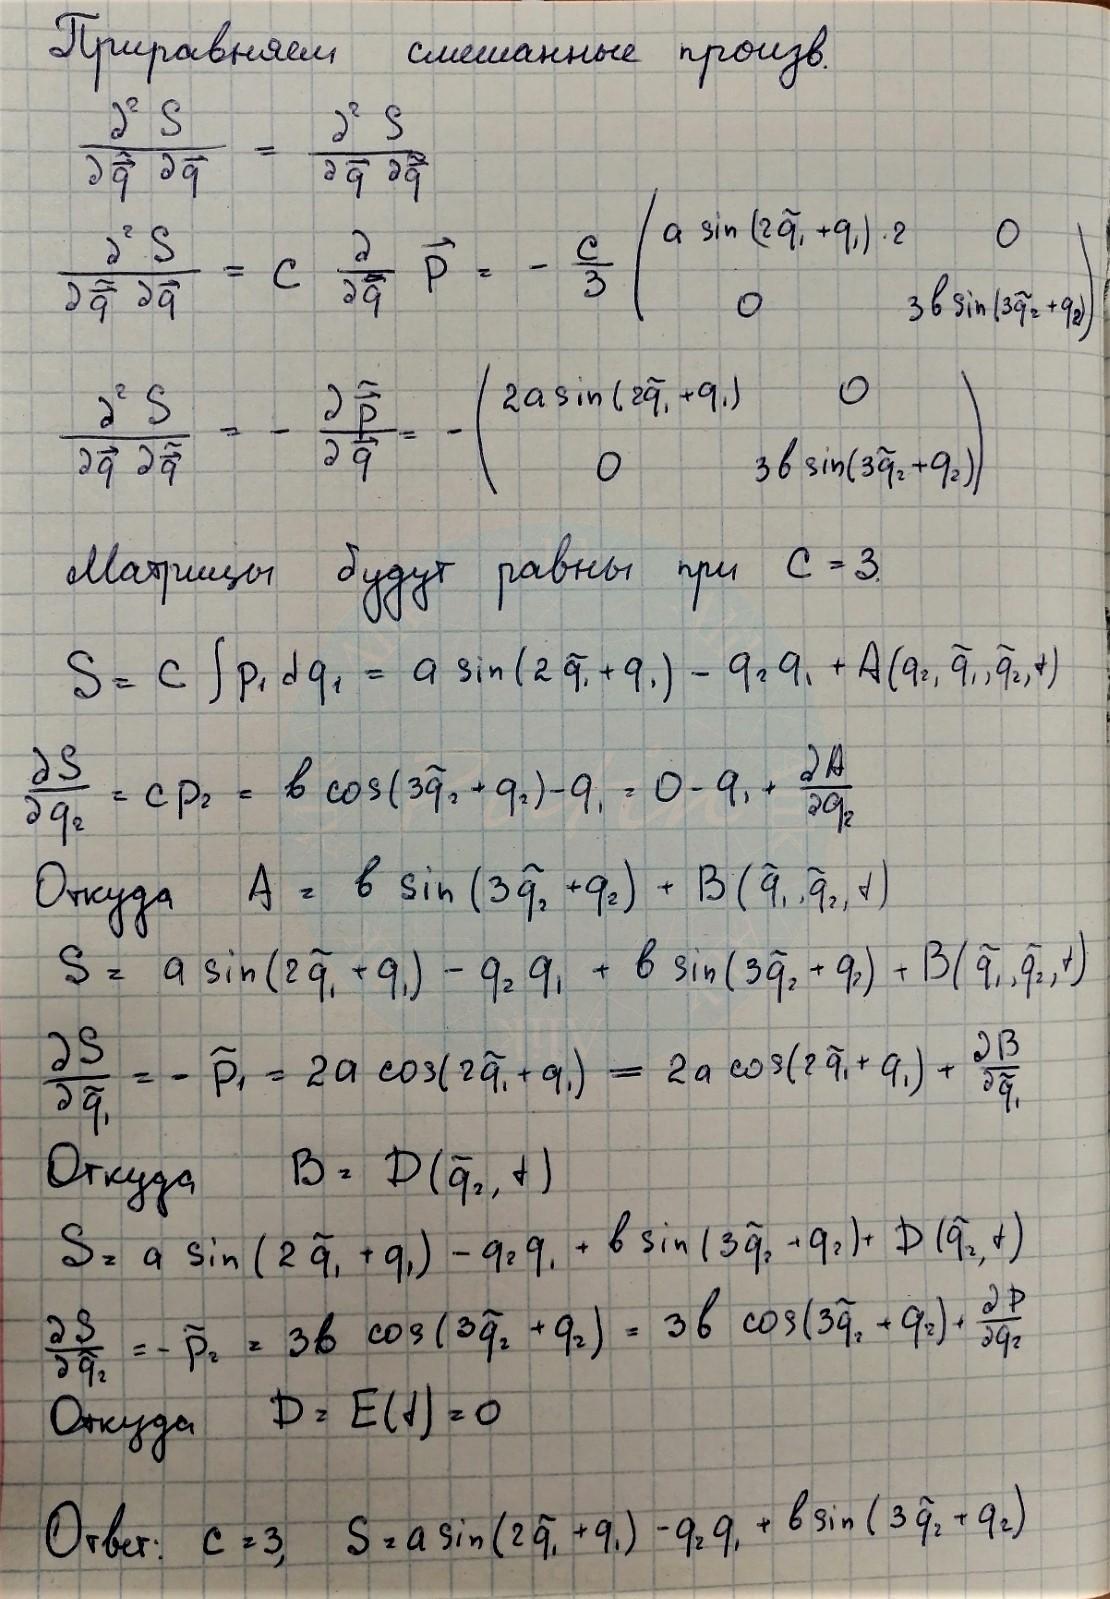 Приравняем смешанные произв.
∂²S/∂q̃⃗ ∂q⃗ = ∂²S/∂q⃗ ∂q̃⃗
∂²S/∂q̃⃗ ∂q⃗ = C ∂/∂q̃⃗ p⃗ = - C/3 ( a sin(2q̃₁+q₁)·2 0
0 3b sin(3q̃₂+q₂) )
∂²S/∂q⃗ ∂q̃⃗ = - ∂p̃⃗/∂q⃗ = - ( 2a sin(2q̃₁+q₁) 0
0 3b sin(3q̃₂+q₂) )
Матрицы будут равны при C = 3.
S = C ∫ p₁ dq₁ = a sin(2q̃₁+q₁) - q₂q₁ + A(q₂, q̃₁, q̃₂, t)
∂S/∂q₂ = cp₂ = b cos(3q̃₂+q₂) - q₁ = 0 - q₁ + ∂A/∂q₂
Откуда A = b sin(3q̃₂+q₂) + B(q̃₁, q̃₂, t)
S = a sin(2q̃₁+q₁) - q₂q₁ + b sin(3q̃₂+q₂) + B(q̃₁, q̃₂, t)
∂S/∂q̃₁ = - p̃₁ = 2a cos(2q̃₁+q₁) = 2a cos(2q̃₁+q₁) + ∂B/∂q̃₁
Откуда B = D(q̃₂, t)
S = a sin(2q̃₁+q₁) - q₂q₁ + b sin(3q̃₂+q₂) + D(q̃₂, t)
∂S/∂q̃₂ = - p̃₂ = 3b cos(3q̃₂+q₂) = 3b cos(3q̃₂+q₂) + ∂D/∂q̃₂
Откуда D = E(t) = 0
Ответ: C = 3, S = a sin(2q̃₁+q₁) - q₂q₁ + b sin(3q̃₂+q₂)